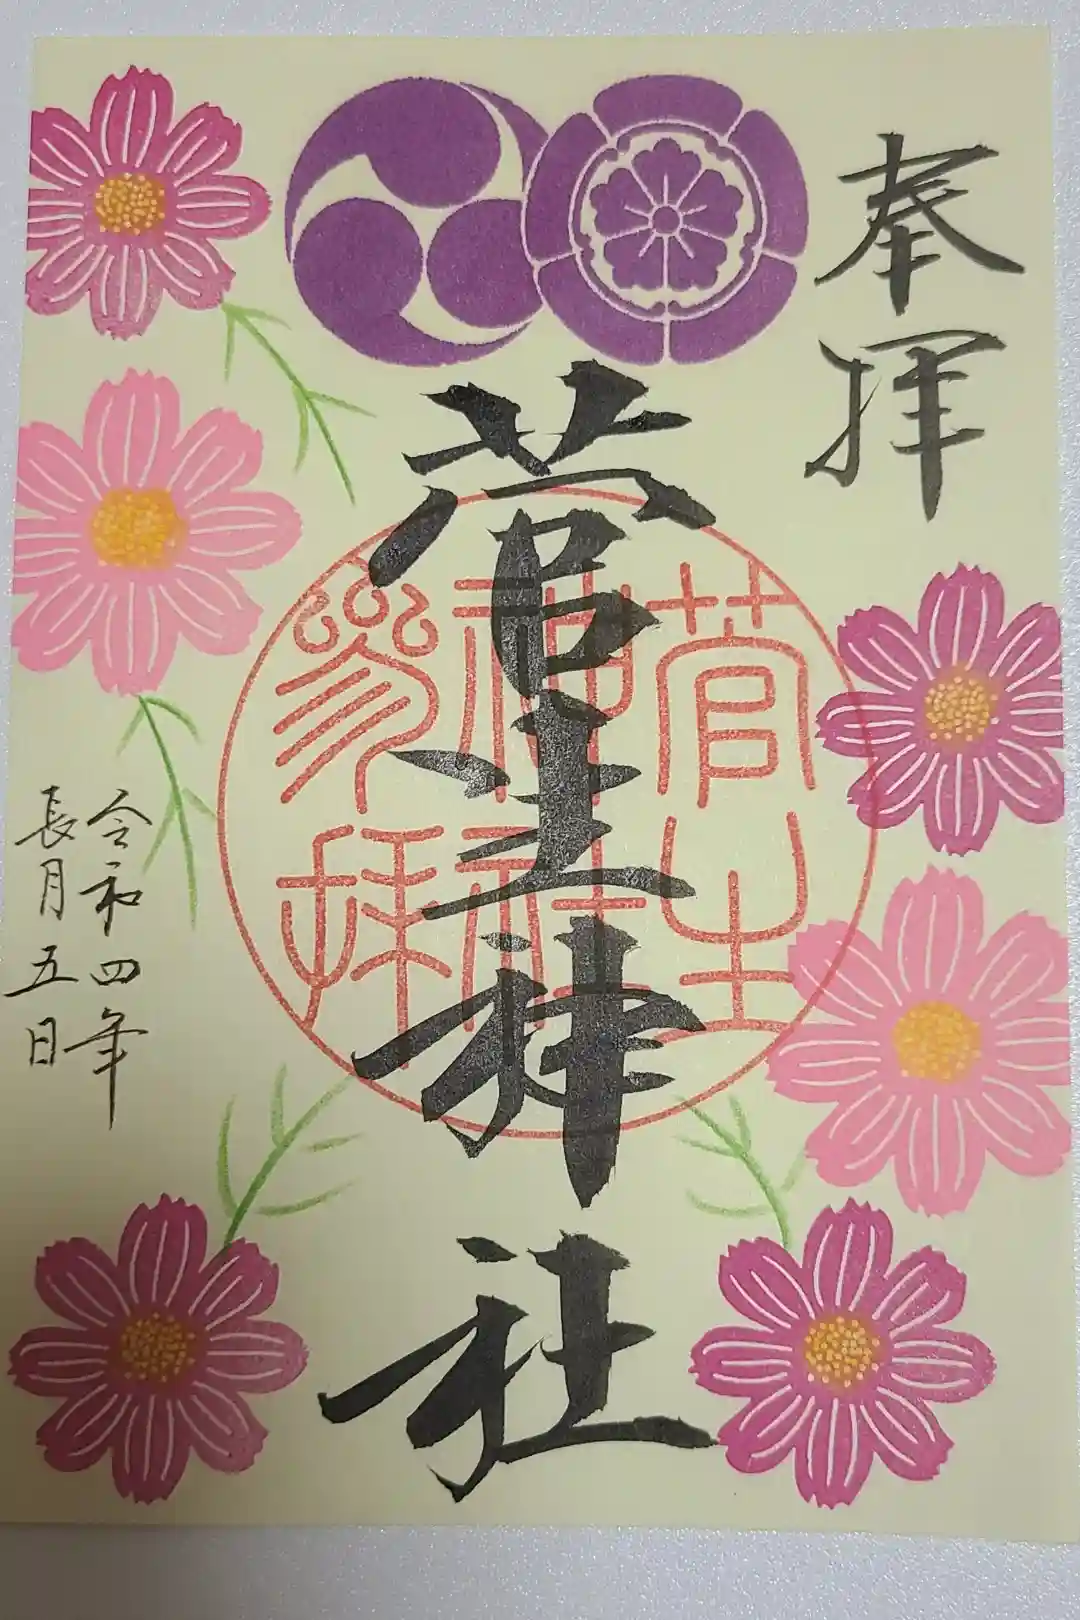 奉拝
菅生神社
菅生
神社
参拝
令和四年
長月五日